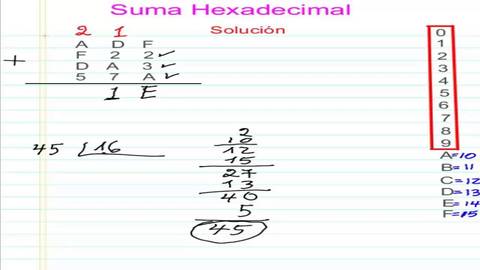 Suma Hexadecimal
Solución
2 1
A D F
F 2 2 ✓
+ D A 3 ✓
5 7 A ✓
1 E
45 16
2
10
12
15
27
13
40
5
45
0
1
2
3
4
5
6
7
8
9
A=10
B=11
C=12
D=13
E=14
F=15